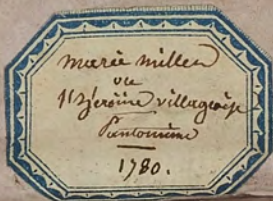 marie millen
ou
l'héroïne villageoise
Pantomime
1780.